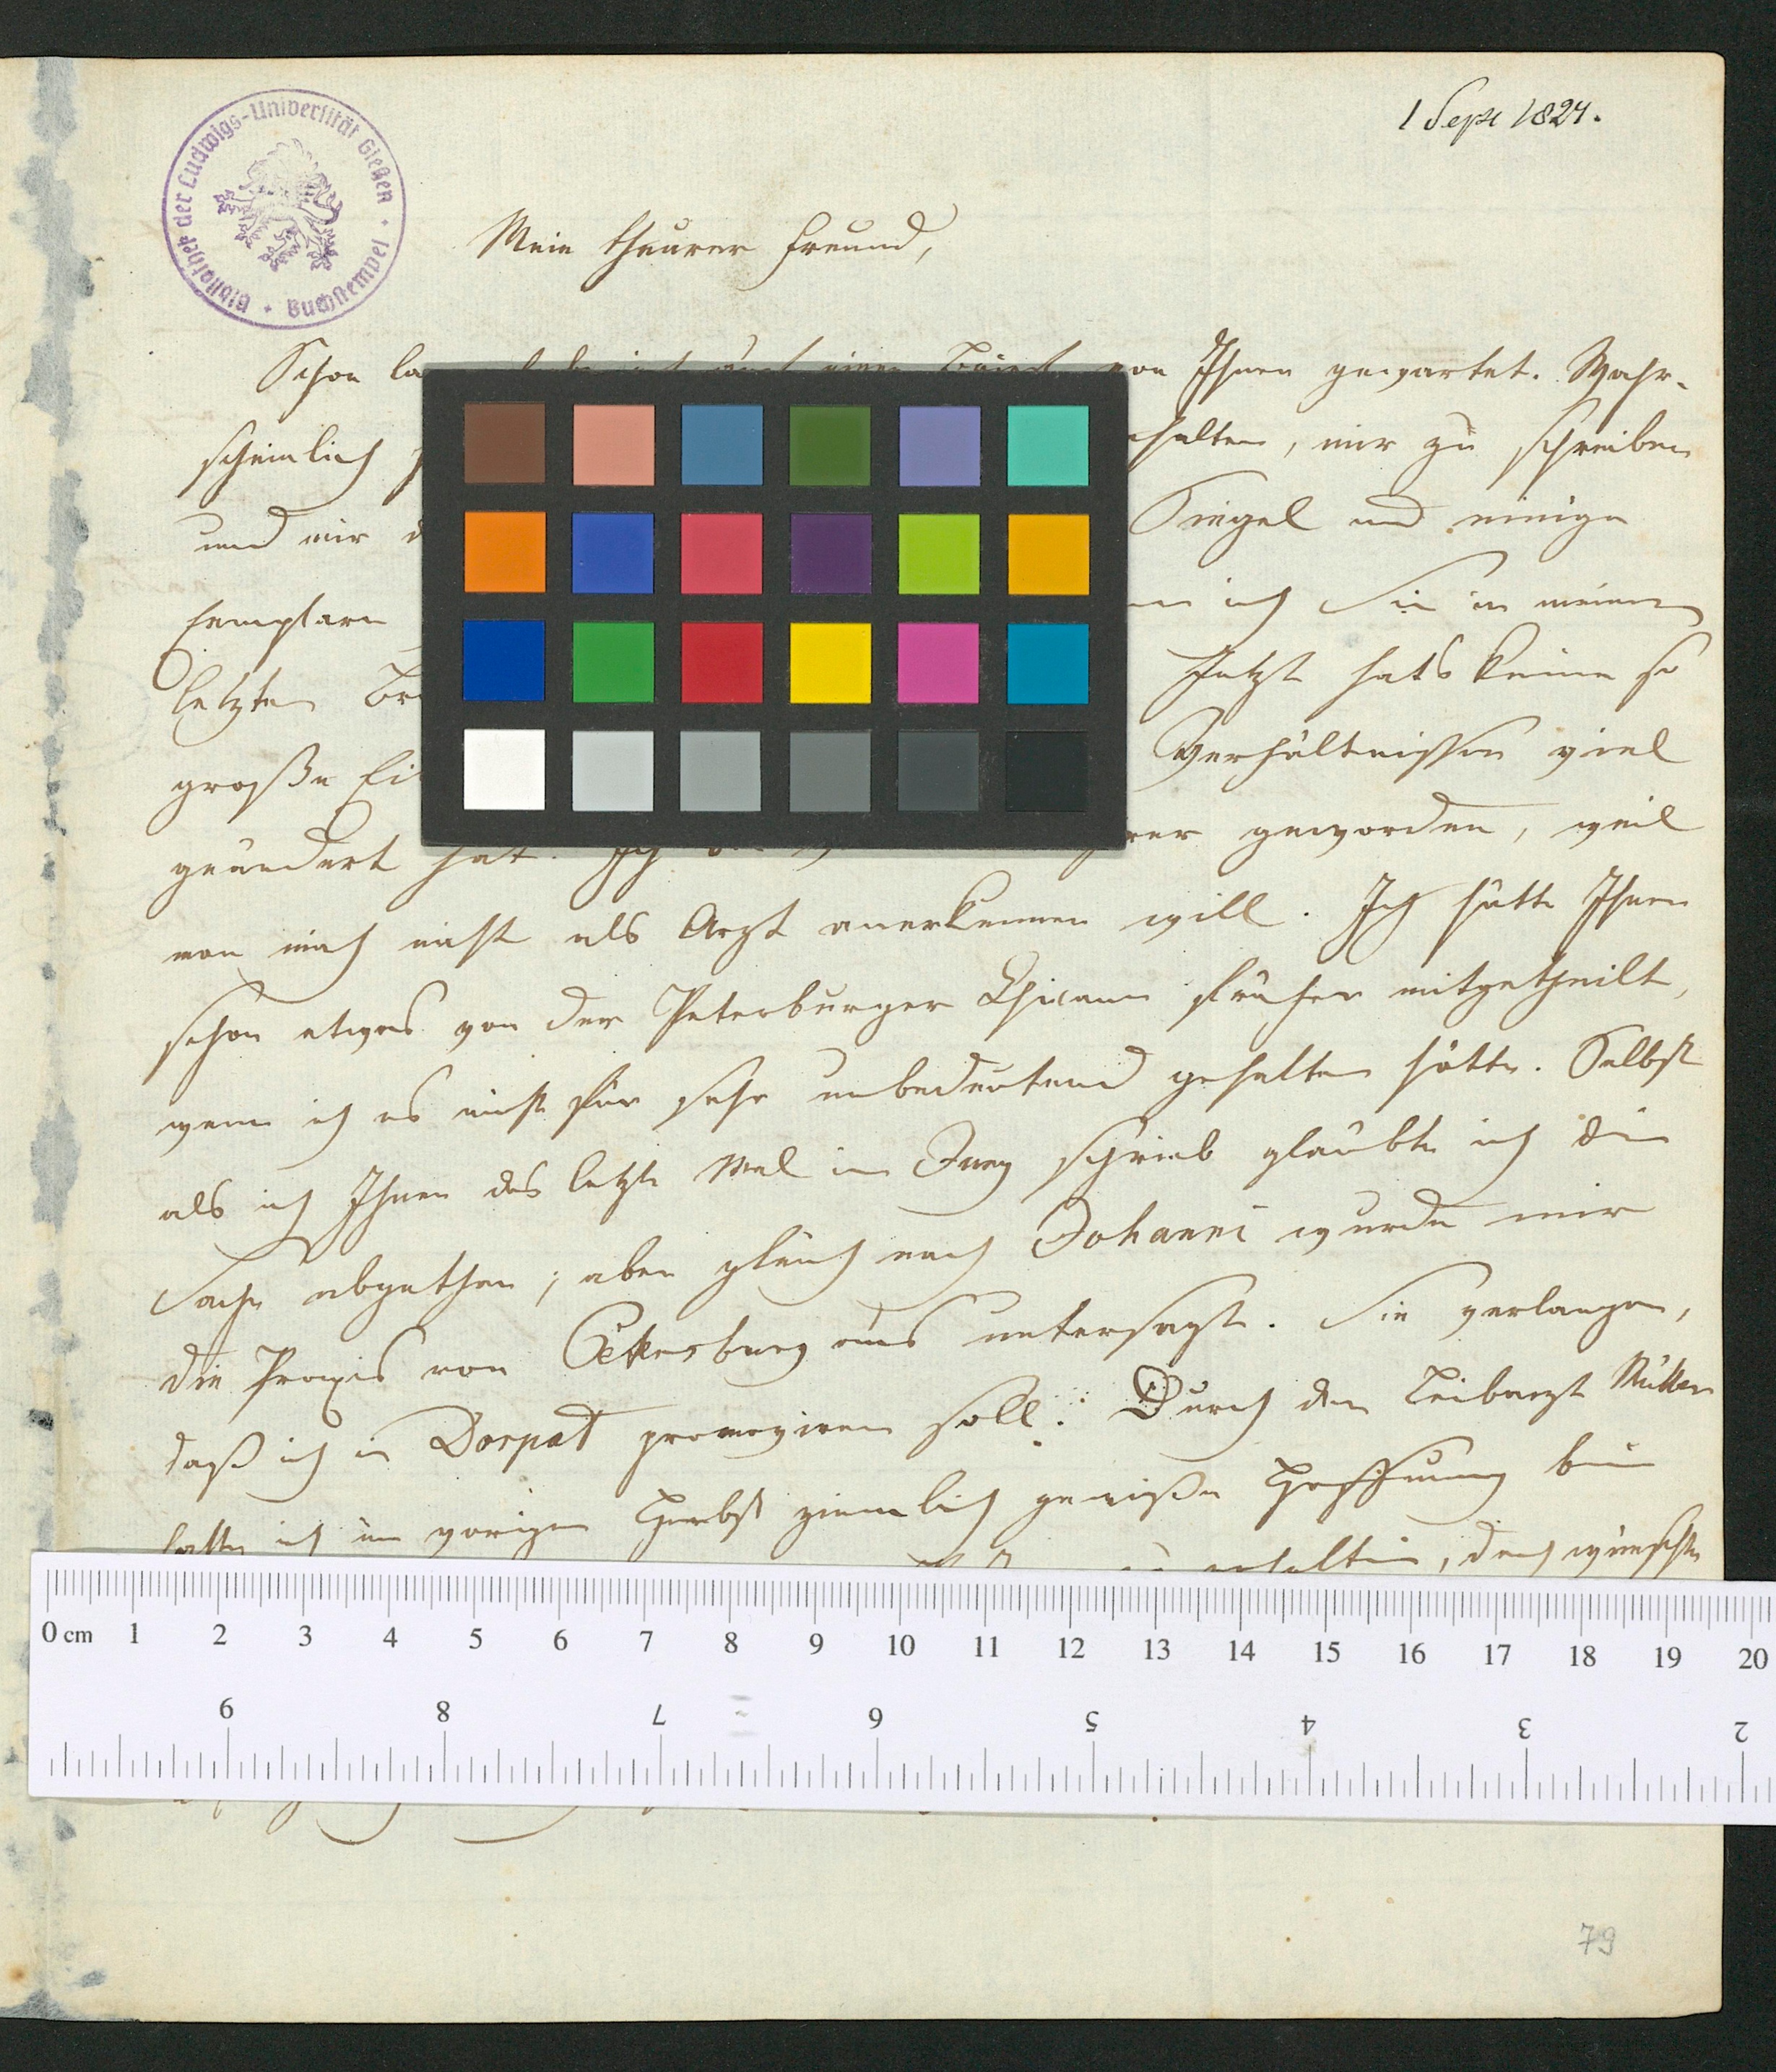 1 Sept 1824.
Bibliothek der Ludwigs-Universität Gießen • Buchstempel •
Mein theurer Freund,
Schon von Ihnen gewartet. Wahr-
scheinlich halten, mir zu schreiben
und mir Siegel und einige
Exemplare ich Sie in meinem
letzten Jetzt hat's keine so
große Verhältnissen viel
geändert hat. Ich geworden, weil
man mich nicht als Arzt anerkennen will. Ich hätte Ihnen
schon etwas von der Petersburger Chicane früher mitgetheilt,
wenn ich es nicht für sehr unbedeutend gehalten hätte. Selbst
als ich Ihnen das letzte Mal im Juny schrieb glaubte ich die
Sache abgethan; aber gleich nach Johanni wurde mir
die Praxis von Petersburg aus untersagt. Sie verlangen,
daß ich in Dorpat promoviren soll. Durch den Leibarzt Müller
hatte ich im vorigen Herbst ziemlich gewiße Hoffnung
erhalten, doch wünschte
0 cm 1 2 3 4 5 6 7 8 9 10 11 12 13 14 15 16 17 18 19 20
9 8 7 6 5 4 3 2
79